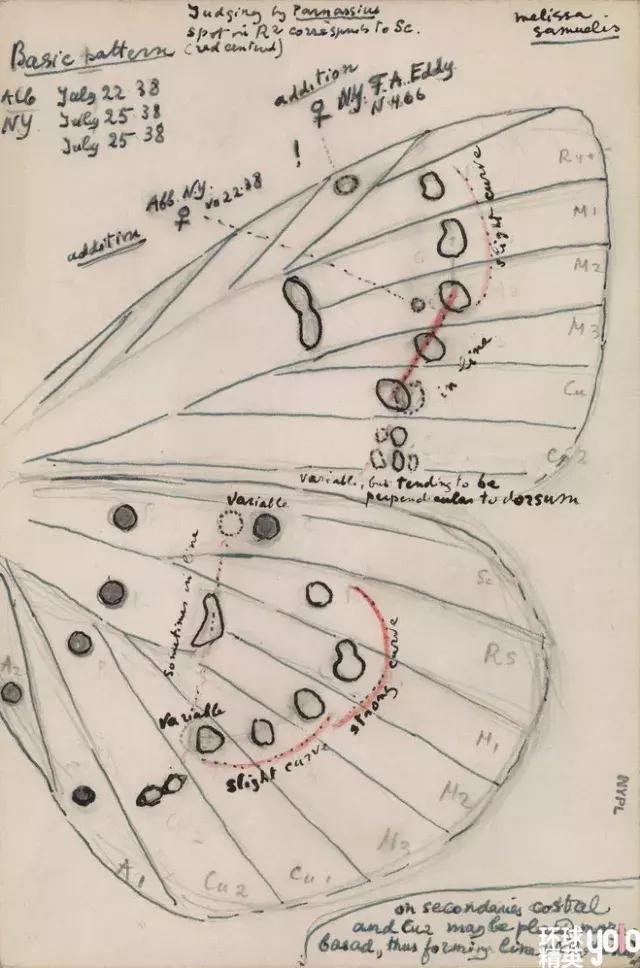 Judging by Parnassius
spot in R2 corresponds to Sc.
(red centred)
melissa
samuelis
Basic pattern
Alb July 22 38
NY July 25 38
July 25 38
addition
♀ NY. F.A. Eddy.
N 4.66
!
Alb. N.Y.
♀ 22 38
addition
slight curve
R4+5
M1
M2
M3
Cu
Cu2
in line
variable, but tending to be
perpendicular to dorsum
variable
sometimes in line
Sc
R5
M1
M2
M3
Cu1
Cu2
A1
A2
strong curve
variable
slight curve
NYPL
on secondaries costal
and Cu2 may be
basad, thus forming line
环球
精英
yolo